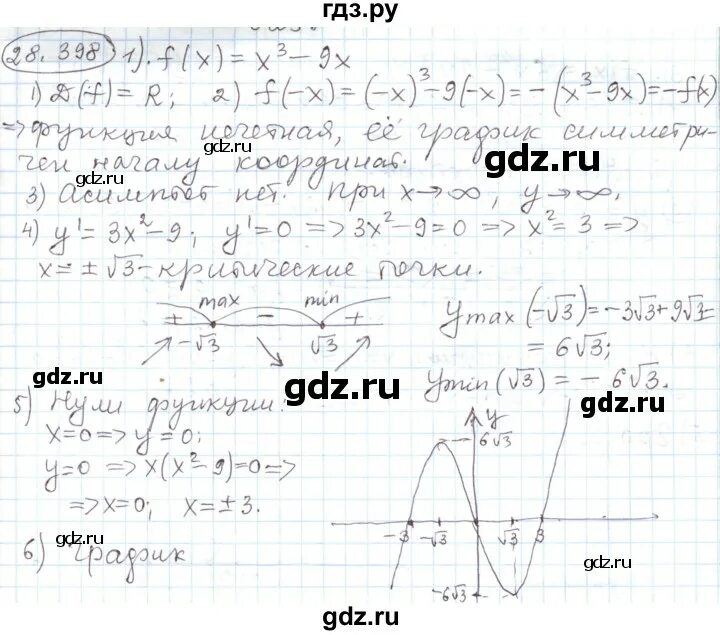 гдз.ру
28.398 1). f(x) = x³ - 9x
1) D(f) = R; 2) f(-x) = (-x)³ - 9(-x) = -(x³ - 9x) = -f(x)
=> функция нечетная, её график симметри-
чен началу координат.
gdz.ru
gdz.ru
3) Асимптот нет. При x → ∞, y → ∞.
gdz.ru
4) y' = 3x² - 9; y' = 0 => 3x² - 9 = 0 => x² = 3 =>
x = ± √3 - критические точки.
max min
+ - +
-√3 √3
y max (-√3) = -3√3 + 9√3 =
= 6√3;
y min (√3) = - 6√3.
gdz.ru
gdz.ru
gdz.ru
5) Нули функции:
x = 0 => y = 0;
y = 0 => x(x² - 9) = 0 =>
=> x = 0; x = ± 3.
gdz.ru
6) График
y
6√3
-3 -√3 √3 3
-6√3
gdz.ru
gdz.ru